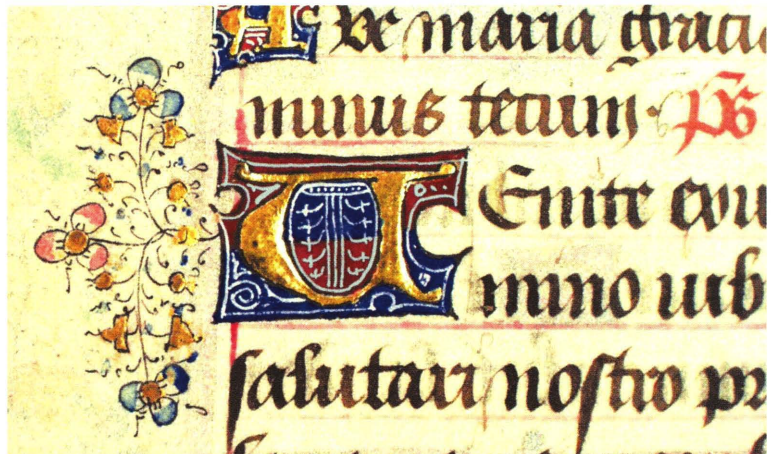 Ave maria graci
minus tecum. Ps
Venite exu
mino iub
salutari nostro pr